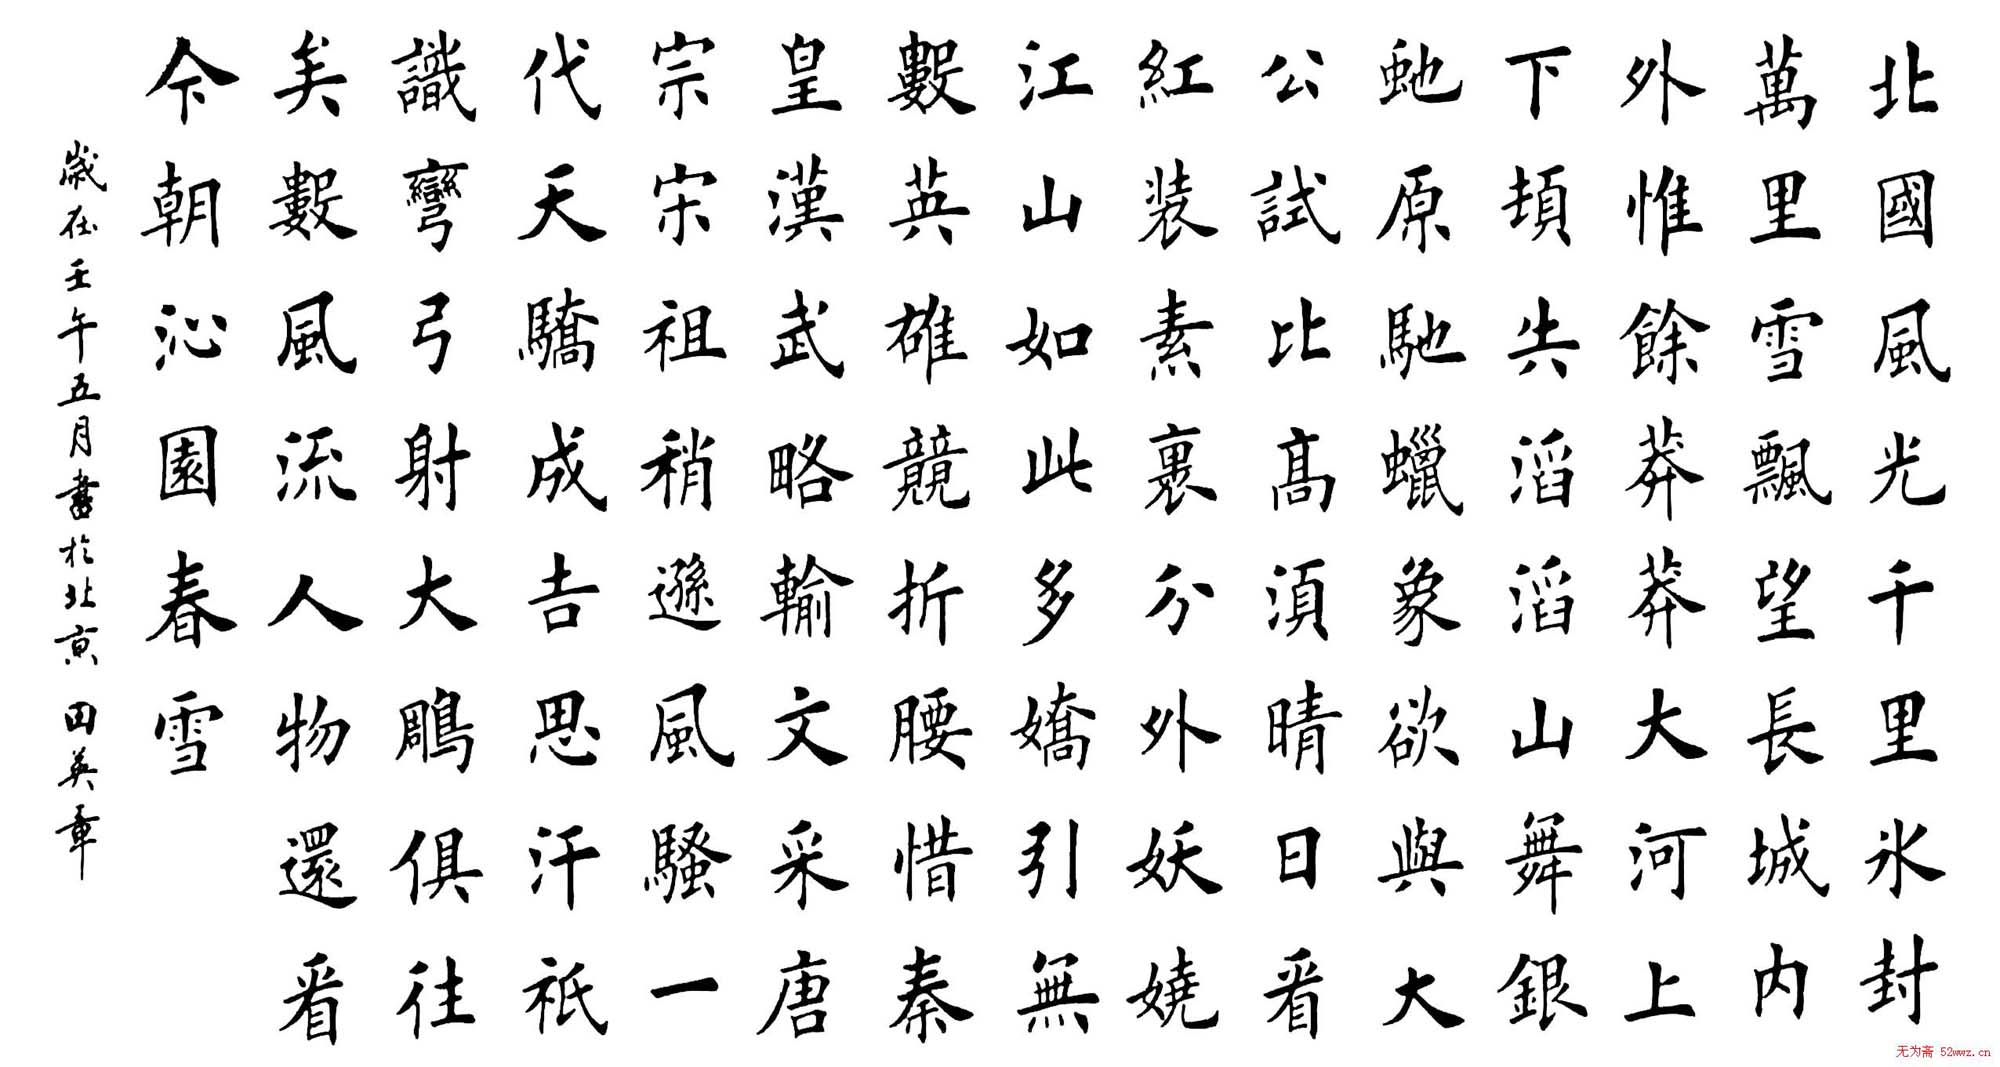 北國風光千里氷封
萬里雪飄望長城内
外惟餘莽莽大河上
下頓失滔滔山舞銀
虵原馳蠟象欲與大
公試比髙須晴日看
紅装素裹分外妖嬈
江山如此多嬌引無
數英雄競折腰惜秦
皇漢武略輸文采唐
宗宋祖稍遜風騷一
代天驕成吉思汗祇
識彎弓射大鵰俱往
矣數風流人物還看
今朝沁園春雪
歲在壬午五月書於北京田英章
无为斋 52wwz.cn